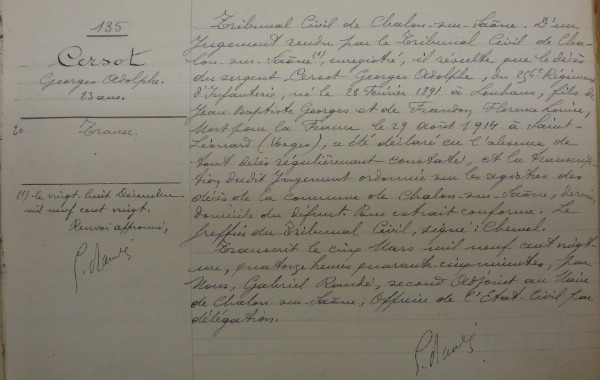 135
Cersot
Georges Adolphe
23 ans.
20 France.
(1) le vingt huit Décembre
mil neuf cent vingt.
Renvoi approuvé,
Tribunal Civil de Chalon-sur-Saône. D'un
Jugement rendu par le Tribunal Civil de Cha-
lon-sur-Saône (1), enregistré, il résulte que le décès
du sergent Cersot Georges Adolphe, du 256e Régiment
d'Infanterie, né le 28 Février 1891 à Louhans, fils de
Jean-Baptiste Georges et de Frandon Florence Louise,
Mort pour la France le 29 août 1914 à Saint-
Léonard (Vosges), a été déclaré en l'absence de
tout décès régulièrement constaté, et la transcrip-
tion dudit Jugement ordonnée sur les registres des
décès de la commune de Chalon-sur-Saône, dernier
domicile du défunt. Pour extrait conforme. Le
greffier du Tribunal Civil, signé :
Transcrit le cinq Mars mil neuf cent vingt-
un, quatorze heures quarante cinq minutes, par
Nous, Gabriel second Adjoint au Maire
de Chalon-sur-Saône, Officier de l'Etat-Civil par
délégation.